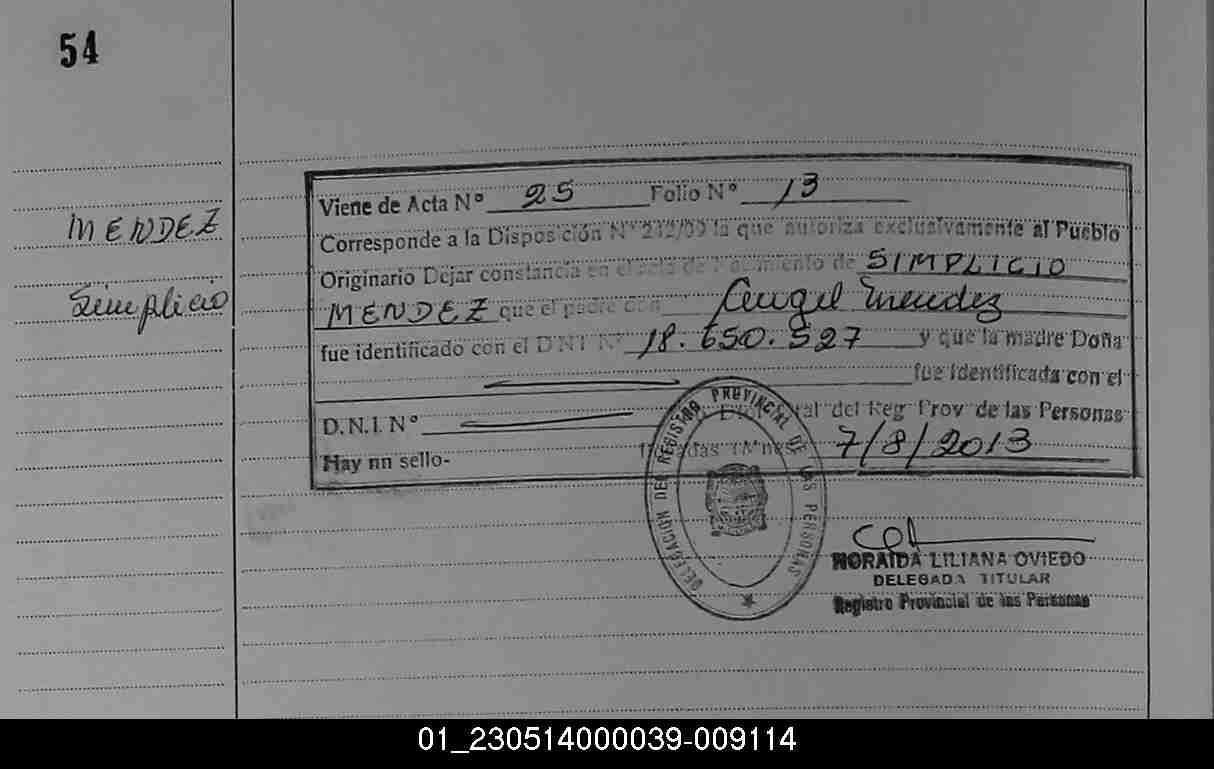 54
MENDEZ
Simplicio
Viene de Acta N° 25 Folio N° 13
Corresponde a la Disposición N° 212/00 la que autoriza exclusivamente al Pueblo
Originario Dejar constancia en el acta de Nacimiento de SIMPLICIO
MENDEZ que el padre don Angel Mendez
fue identificado con el DNI N° 18.650.527 y que la madre Doña
fue identificada con el
D.N.I. N° tal del Reg Prov de las Personas
Hay nn sello- 7/8/2013
DELEGACION DEL REGISTRO PROVINCIAL DE LAS PERSONAS
NORAIDA LILIANA OVIEDO
DELEGADA TITULAR
Registro Provincial de las Personas
01_230514000039-009114